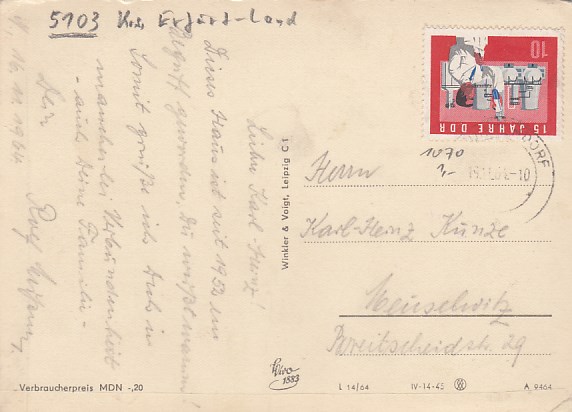 5103 Krs. Erfurt-Land
Lieber Karl-Heinz!
Dieses Haus ist seit 1952 ein
Begriff geworden. Du weißt warum!
Somit grüße ich Dich in
mancherlei Verbundenheit
- auch Deine Familie -
Dein Rolf
16.11.1964
Winkler & Voigt, Leipzig C 1
10
15 JAHRE DDR
DORF
-10
1070
Herrn
Karl-Heinz Kunze
Meuselwitz
Breitscheidstr. 29
1583
Verbraucherpreis MDN -,20
L 14/64
IV-14-45
A 9464